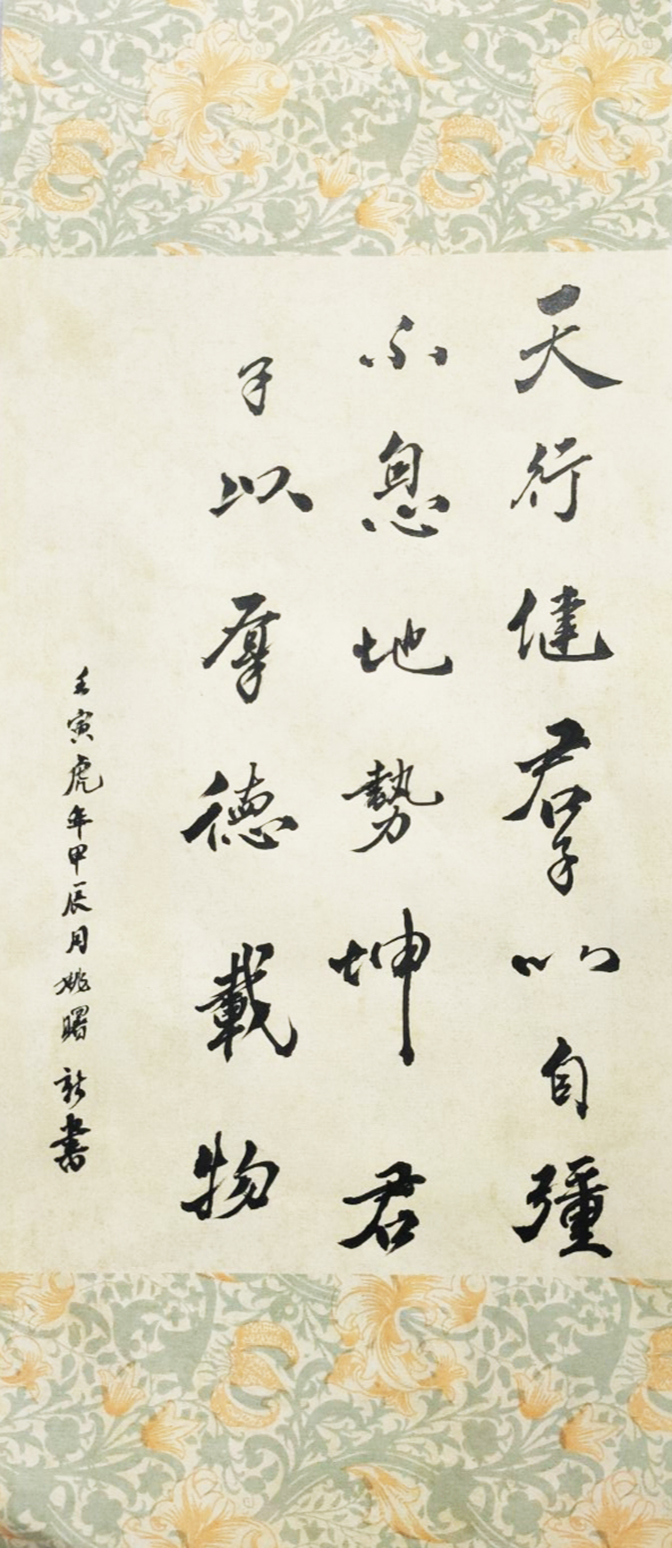 天行健君子以自彊
不息地勢坤君
子以厚德載物
壬寅虎年甲辰月姚曙新書